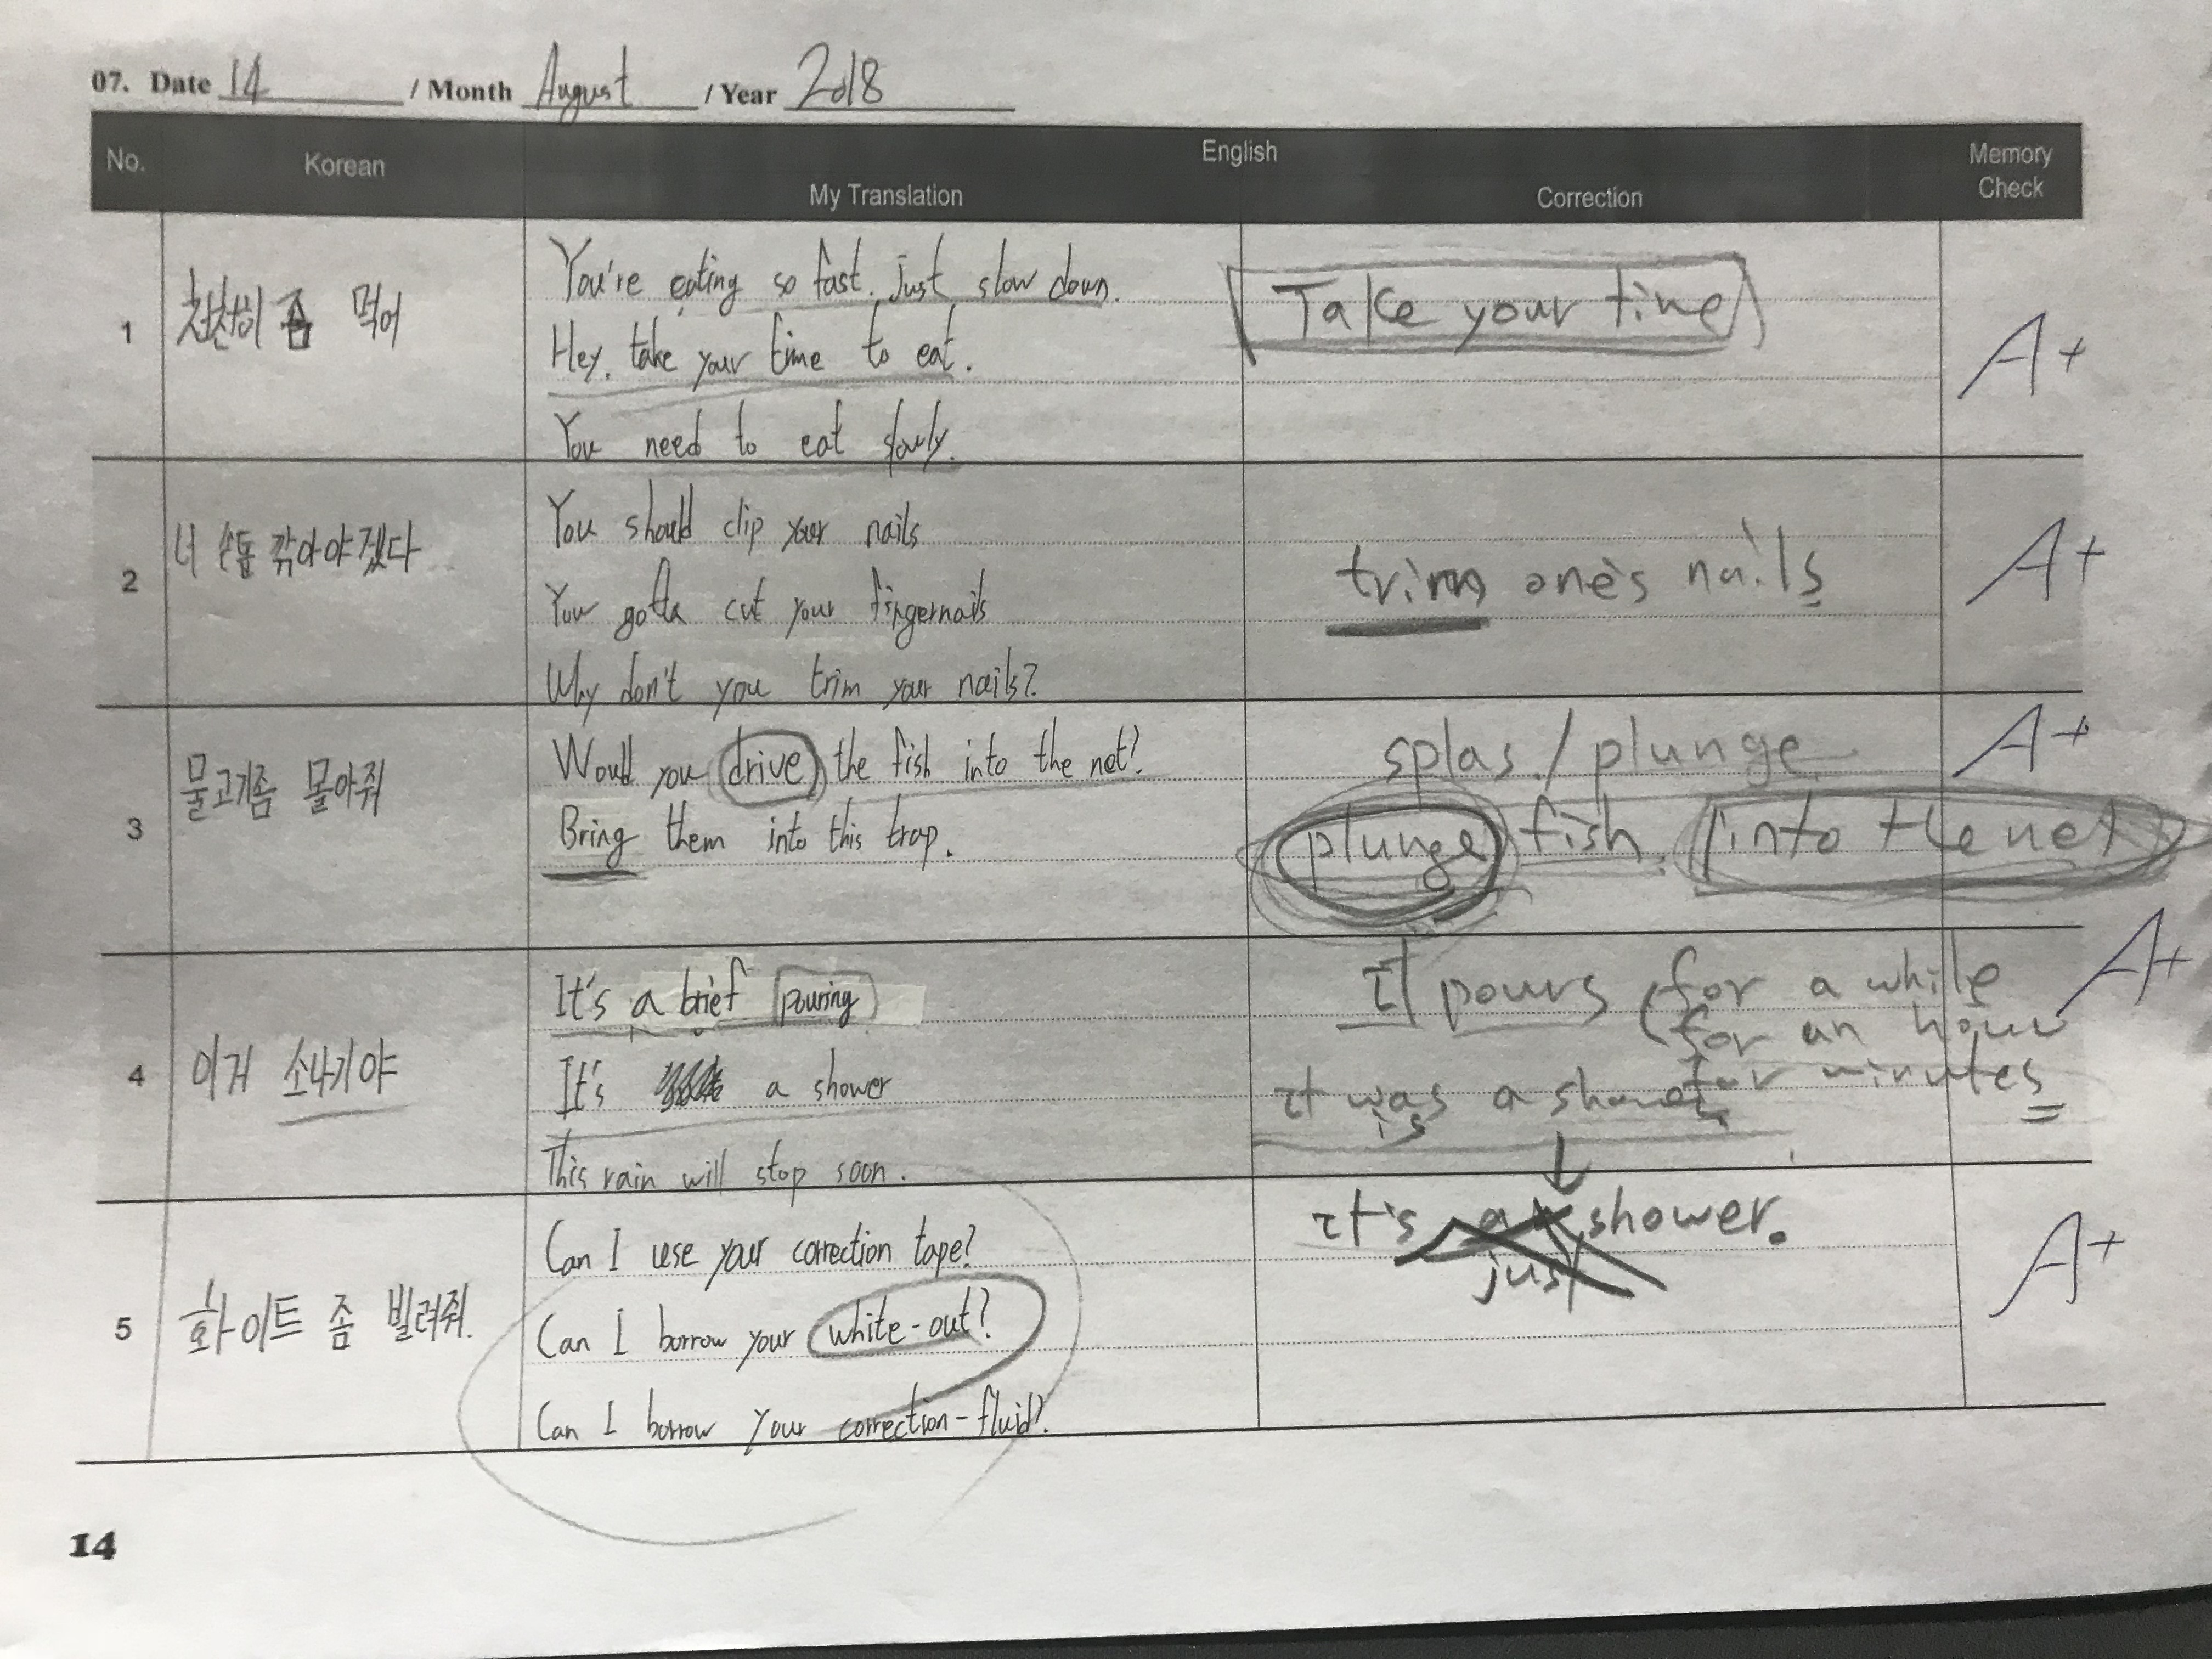 07. Date 14 / Month August / Year 2018
No. Korean English Memory Check
My Translation Correction
1 천천히 좀 먹어
You're eating so fast. just slow down.
Hey, take your time to eat.
You need to eat slowly.
Take your time
A+
2 너 손톱 깎아야겠다
You should clip your nails
You gotta cut your fingernails
Why don't you trim your nails?
trim one's nails
A+
3 물고기좀 몰아줘
Would you drive the fish into the net?
Bring them into this trap.
splas / plunge
plunge fish into the net
A+
4 이거 소나기야
It's a brief pouring
It's a shower
This rain will stop soon.
It pours for a while
for an hour
for minutes
it was a shower
is
it's a shower.
just
A+
5 화이트 좀 빌려줘.
Can I use your correction tape?
Can I borrow your white-out?
Can I borrow your correction-fluid?
A+
14